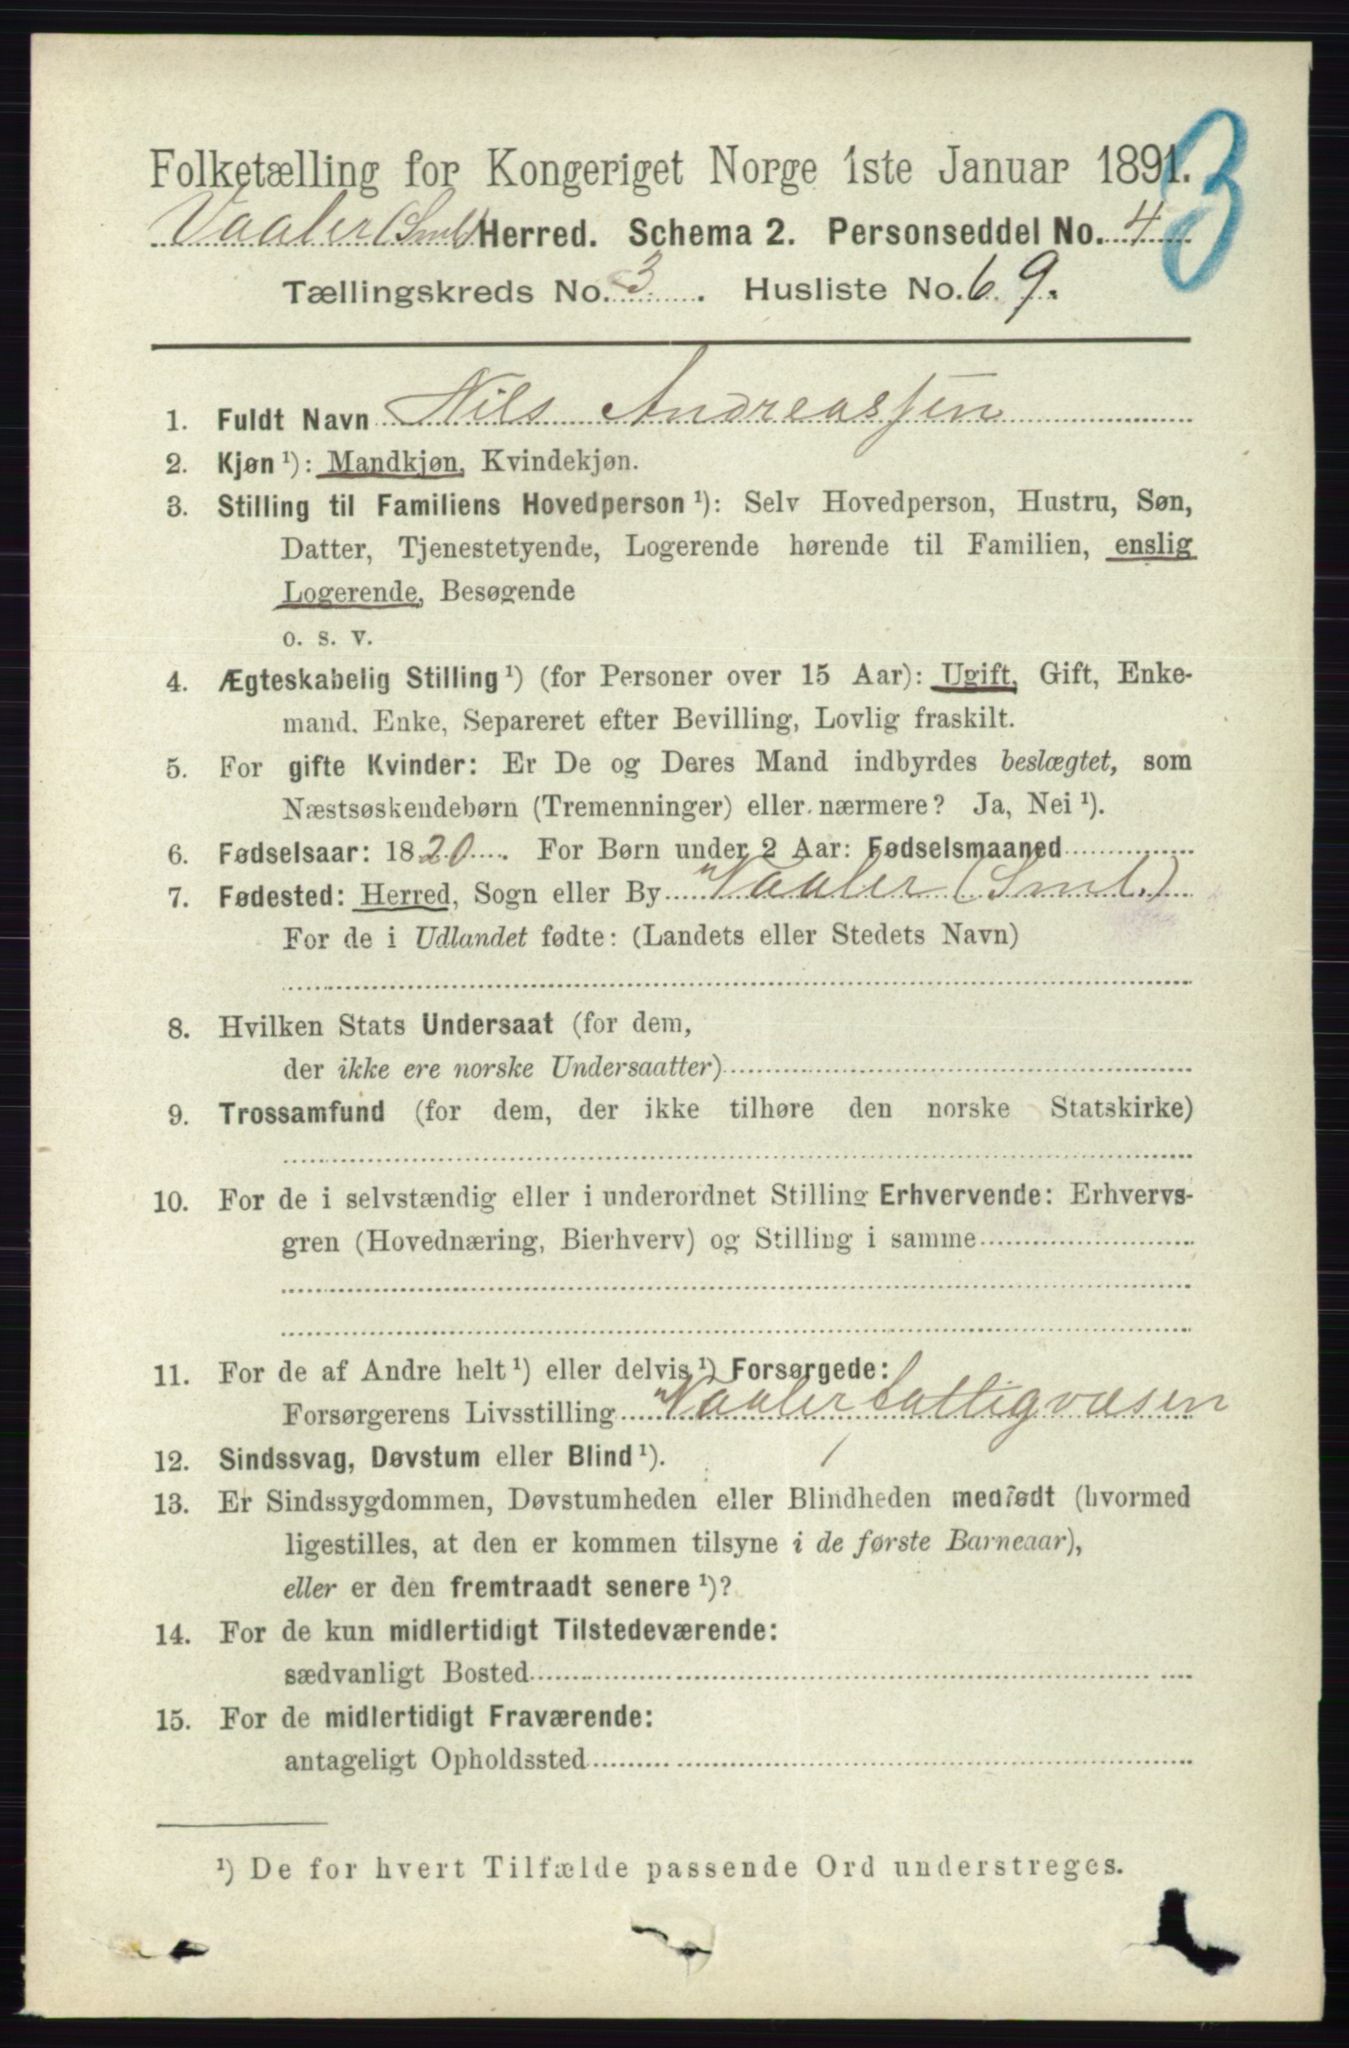 Folketælling for Kongeriget Norge 1ste Januar 1891.
3
Vaaler (Sml) Herred. Schema 2. Personseddel No. 4
Tællingskreds No. 3. Husliste No. 69.
1. Fuldt Navn Nils Andreassen
2. Kjøn ¹): Mandkjøn, Kvindekjøn.
3. Stilling til Familiens Hovedperson ¹): Selv Hovedperson, Hustru, Søn,
Datter, Tjenestetyende, Logerende hørende til Familien, enslig
Logerende, Besøgende
o. s. v.
4. Ægteskabelig Stilling ¹) (for Personer over 15 Aar): Ugift, Gift, Enke-
mand, Enke, Separeret efter Bevilling, Lovlig fraskilt.
5. For gifte Kvinder: Er De og Deres Mand indbyrdes beslægtet, som
Næstsøskendebørn (Tremenninger) eller nærmere? Ja, Nei ¹).
6. Fødselsaar: 1820. For Børn under 2 Aar: Fødselsmaaned
7. Fødested: Herred, Sogn eller By Vaaler (Sml.)
For de i Udlandet fødte: (Landets eller Stedets Navn)
8. Hvilken Stats Undersaat (for dem,
der ikke ere norske Undersaatter)
9. Trossamfund (for dem, der ikke tilhøre den norske Statskirke)
10. For de i selvstændig eller i underordnet Stilling Erhvervende: Erhvervs-
gren (Hovednæring, Bierhverv) og Stilling i samme
11. For de af Andre helt ¹) eller delvis ¹) Forsørgede:
Forsørgerens Livsstilling Vaaler Fattigvæsen
12. Sindssvag, Døvstum eller Blind ¹).
13. Er Sindssygdommen, Døvstumheden eller Blindheden medfødt (hvormed
ligestilles, at den er kommen tilsyne i de første Barneaar),
eller er den fremtraadt senere ¹)?
14. For de kun midlertidigt Tilstedeværende:
sædvanligt Bosted
15. For de midlertidigt Fraværende:
antageligt Opholdssted
¹) De for hvert Tilfælde passende Ord understreges.